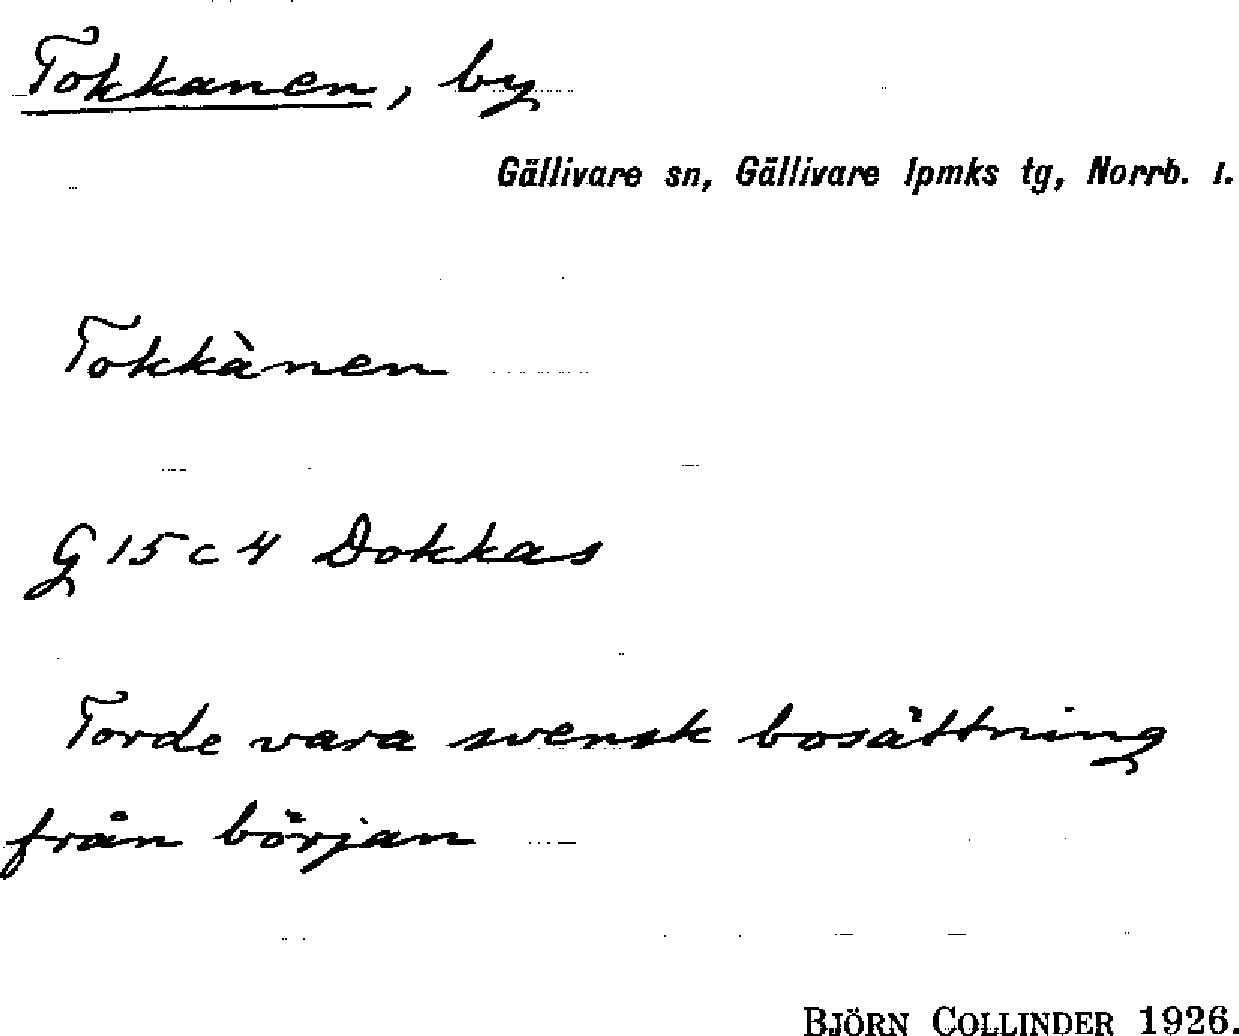 Tokkanen, by
Gällivare sn, Gällivare lpmks tg, Norrb. l.
Tokkànen
G 15 c 4 Dokkas
Torde vara svensk bosättning
från början
BJÖRN COLLINDER 1926.